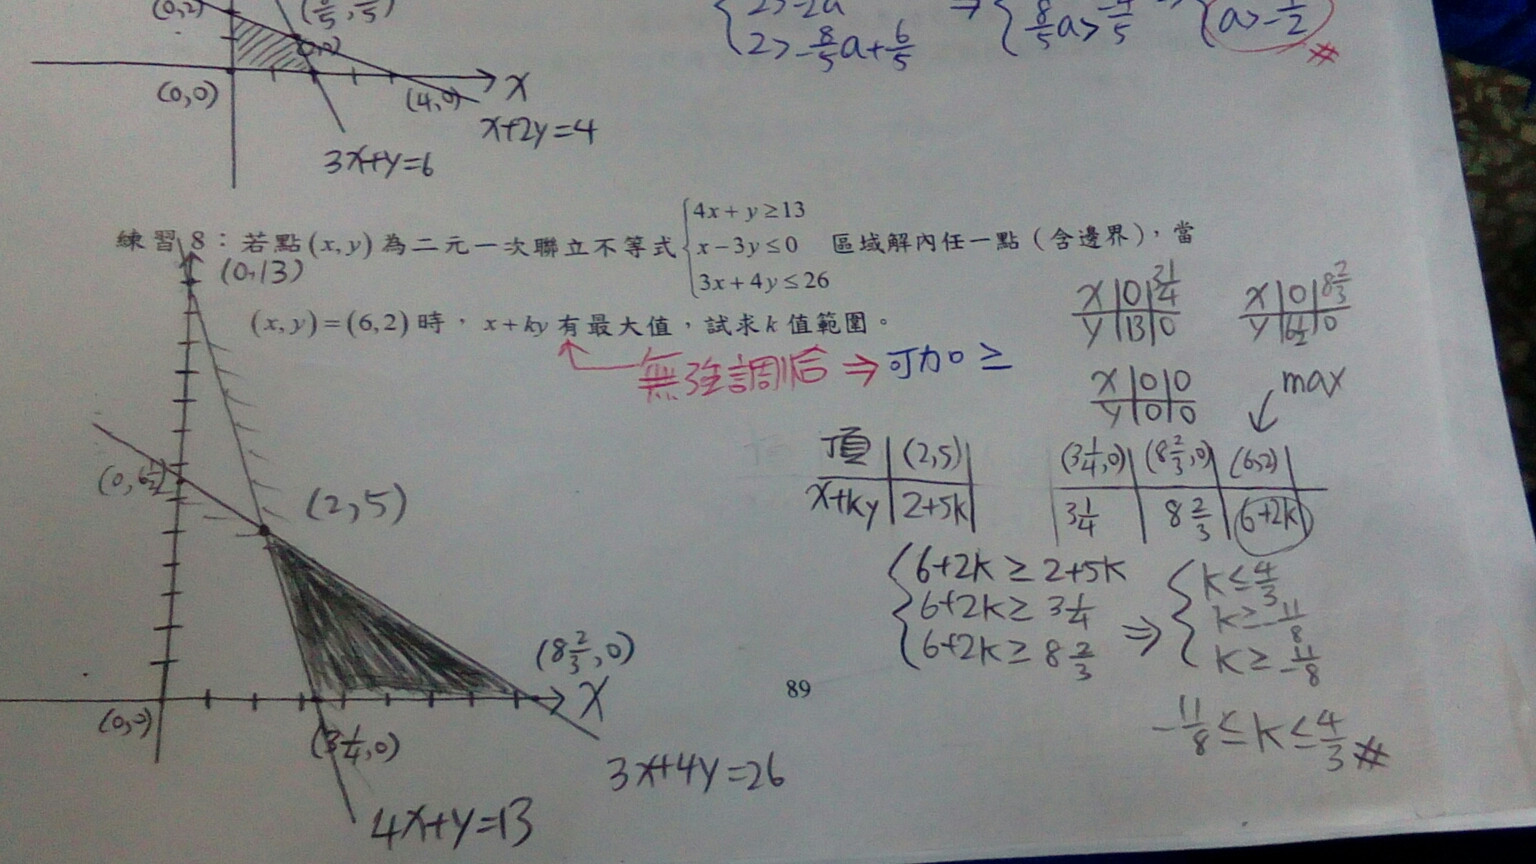 (0,2)
(0,0)
(4,0)
X
x+2y=4
3x+y=6
2>-2a
2>-8/5a+6/5
⇒
8/5a>-4/5
a>-1/2
#
練習 8：若點(x, y)為二元一次聯立不等式{4x+y≥13
x-3y≤0
3x+4y≤26
區域解內任一點（含邊界），當
(x, y)=(6,2)時，x+ky有最大值，試求k值範圍。
(0,13)
⇒可加0≥
X|0|3 1/4
y|13|0
X|0|8 2/3
y|6 1/2|0
X|0|0
y|0|0
max
頂|(2,5)|(3 1/4,0)|(8 2/3,0)|(6,2)
x+ky|2+5k|3 1/4|8 2/3|6+2k
6+2k≥2+5k
6+2k≥3 1/4
6+2k≥8 2/3
⇒
k≤4/3
k≥-11/8
-11/8≤k≤4/3#
(0,6 1/2)
(2,5)
(8 2/3,0)
X
(0,0)
(3 1/4,0)
3x+4y=26
4x+y=13
89